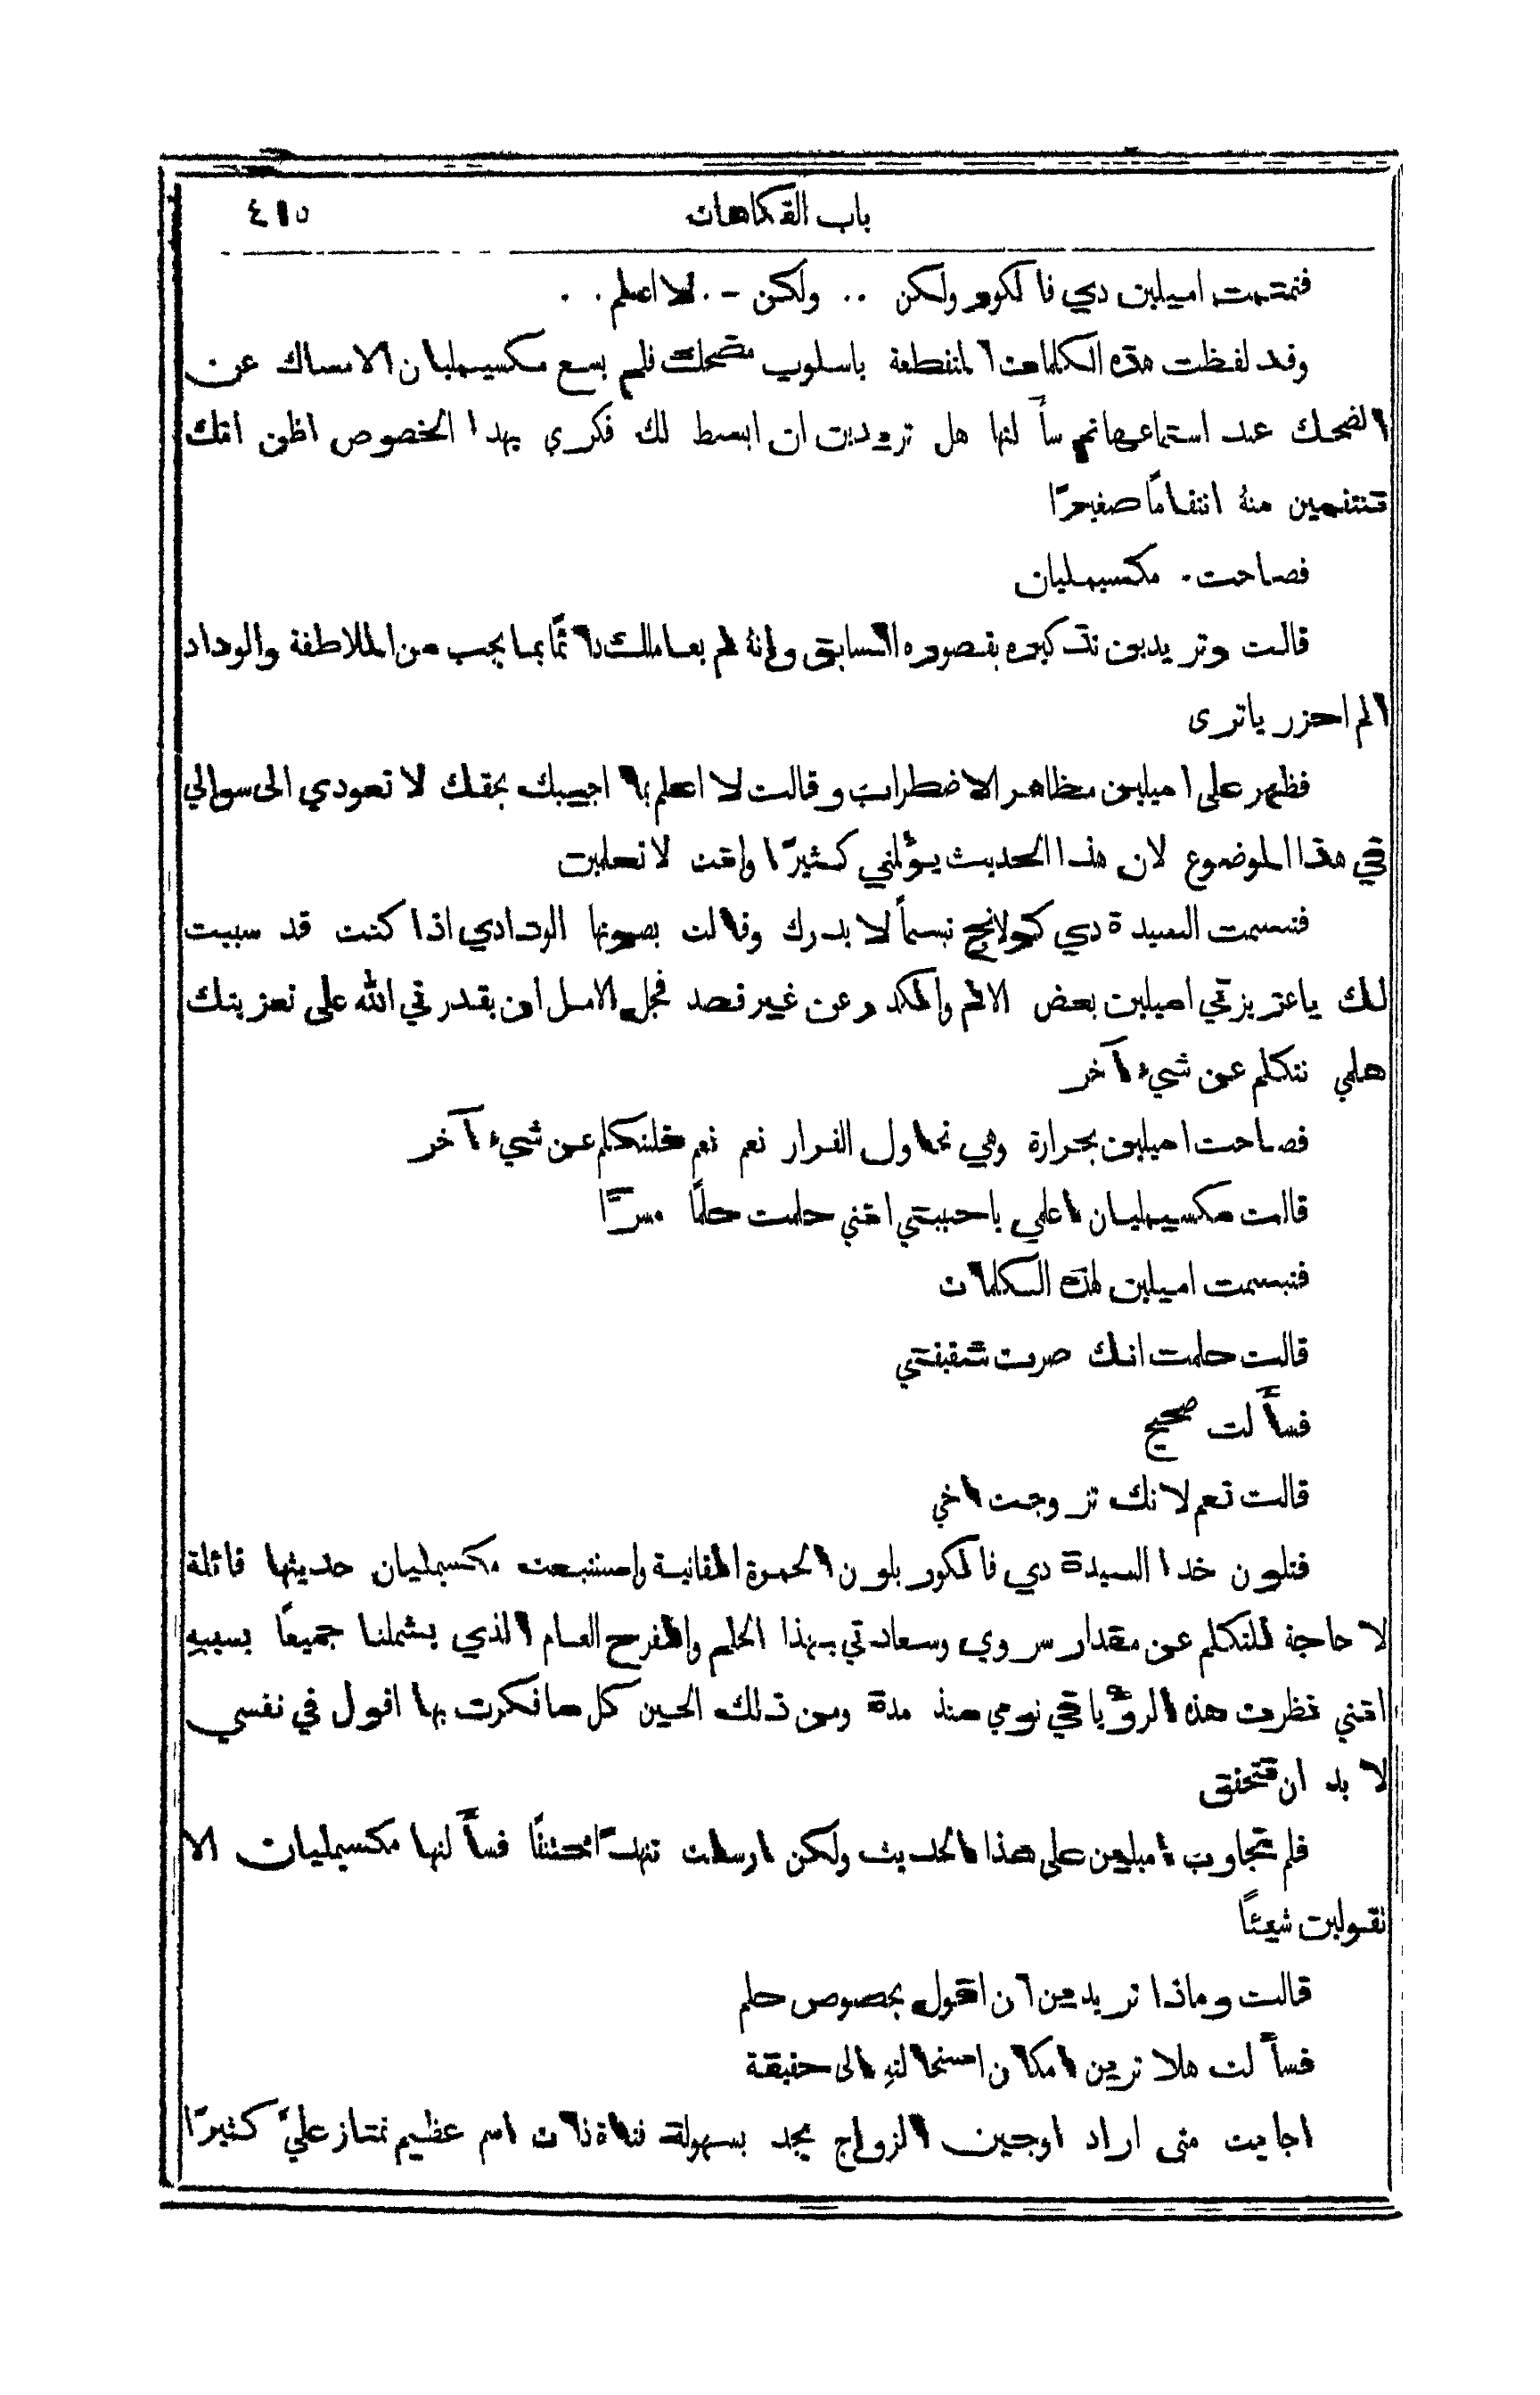 باب الفكاهات ٤١٥
فتمتمت اميلين دي فالكور ولكن .. ولكن -. لا اعلم . .
وقد لفظت هذه الكلمات المنقطعة باسلوب مضحك فلم يسع مكسيمليان الامساك عن
الضحك عند استماعها ثم سأ لتها هل تريدين ان ابسط لك فكري بهذا الخصوص اظن انك
تنتقمين منهُ انتقامًا صغيرًا
فصاحت. مكسيمليان
قالت وتريدين تذكيره بقصوره السابق وانهُ لم يعاملك دائمًا بما يجب من الملاطفة والوداد
الم احزر ياترى
فظهر على اميلين مظاهر الاضطراب وقالت لا اعلم بما اجيبك بحقك لا تعودي الى سوالي
في هذا الموضوع لان هذا الحديث يؤلمني كثيرًا وانت لا تعلمين
فتبسمت السيدة دي كولانج تبسماً لا يدرك وقالت بصوتها الودادي اذا كنت قد سببت
لك ياعزيزتي اميلين بعض الالم والكدر عن غير قصد فجل الامل ان يقدرني الله على تعزيتك
هلمي نتكلم عن شيء آخر
فصاحت اميلين بحرارة وهي تحاول الفرار نعم نعم فلنتكلم عن شيء آخر
قالت مكسيمليان اعلمي ياحبيبتي انني حلمت حلمًا مسرًّا
فتبسمت اميلين لهذه الكلمات
قالت حلمت انك صرت شقيقتي
فسأ لت صحيح
قالت نعم لانك تزوجت اخي
فتلون خدا السيدة دي فالكور بلون الحمرة القانية واستتبعت مكسيمليان حديثها قائلة
لا حاجة للتكلم عن مقدار سروري وسعادتي بهذا الحلم والفرح العام الذي يشملنا جميعًا بسببهِ
انني نظرت هذه الرؤيا في نومي منذ مدة ومن ذلك الحين كل ما فكرت بها اقول في نفسي
لا بد ان تتحقق
فلم تجاوب اميلين على هذا الحديث ولكن ارسلت تنهدًا مختنقًا فسأ لتها مكسيمليان الا
تقولين شيئًا
قالت وماذا تريدين ان اقول بخصوص حلم
فسأ لت هلا ترين امكان استحالتهِ الى حقيقة
اجابت متى اراد اوجين الزواج يجد بسهولة فتاة ذات اسم عظيم تمتاز عليَّ كثيرًا